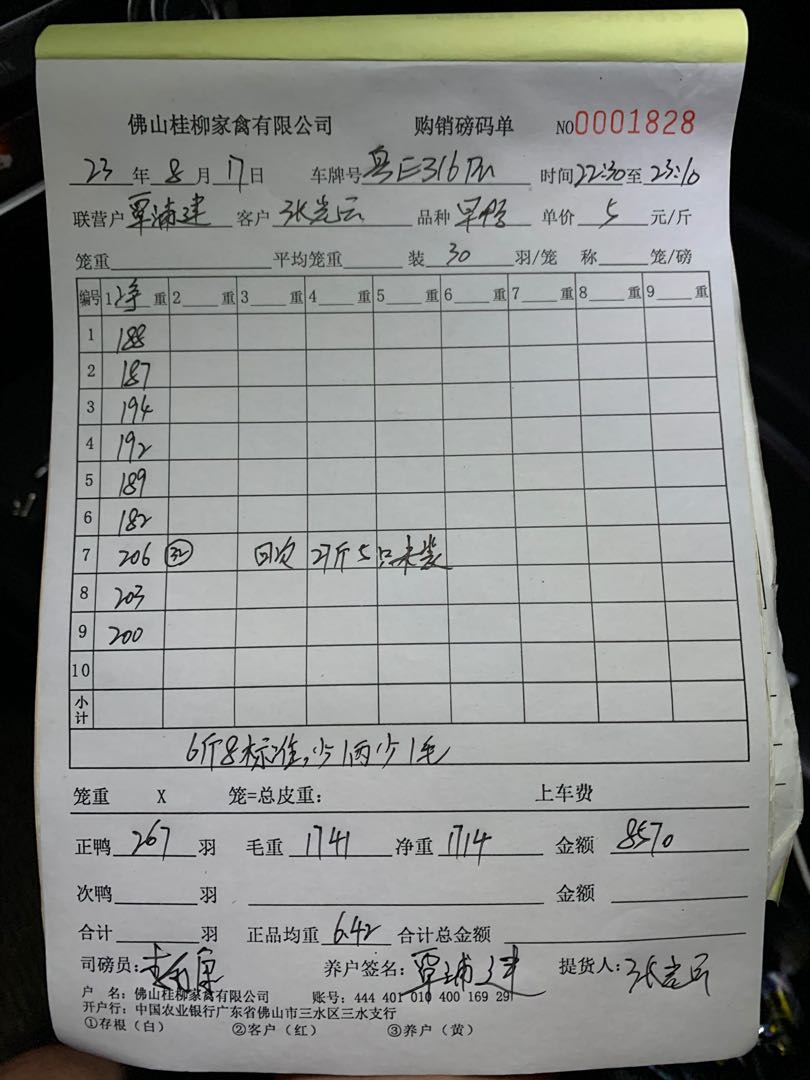 佛山桂柳家禽有限公司 购销磅码单 NO0001828
23年8月17日 车牌号粤E316 时间22:30至23:10
联营户覃浦建 客户张岩云 品种 单价5元/斤
笼重 平均笼重 装30羽/笼 称 笼/磅
编号 1净重 2 重 3 重 4 重 5 重 6 重 7 重 8 重 9 重
1 188
2 187
3 194
4 192
5 189
6 182
7 206 32 回次 27斤5只未装
8 203
9 200
10
小计
6斤8标准,少1两少1毛
笼重 X 笼=总皮重: 上车费
正鸭267羽 毛重1741 净重1714 金额8570
次鸭 羽 金额
合计 羽 正品均重6.42 合计总金额
司磅员: 养户签名:覃浦建 提货人:张岩云
户 名:佛山桂柳家禽有限公司 账号:444 401 010 400 169 29
开户行:中国农业银行广东省佛山市三水区三水支行
①存根(白) ②客户(红) ③养户(黄)